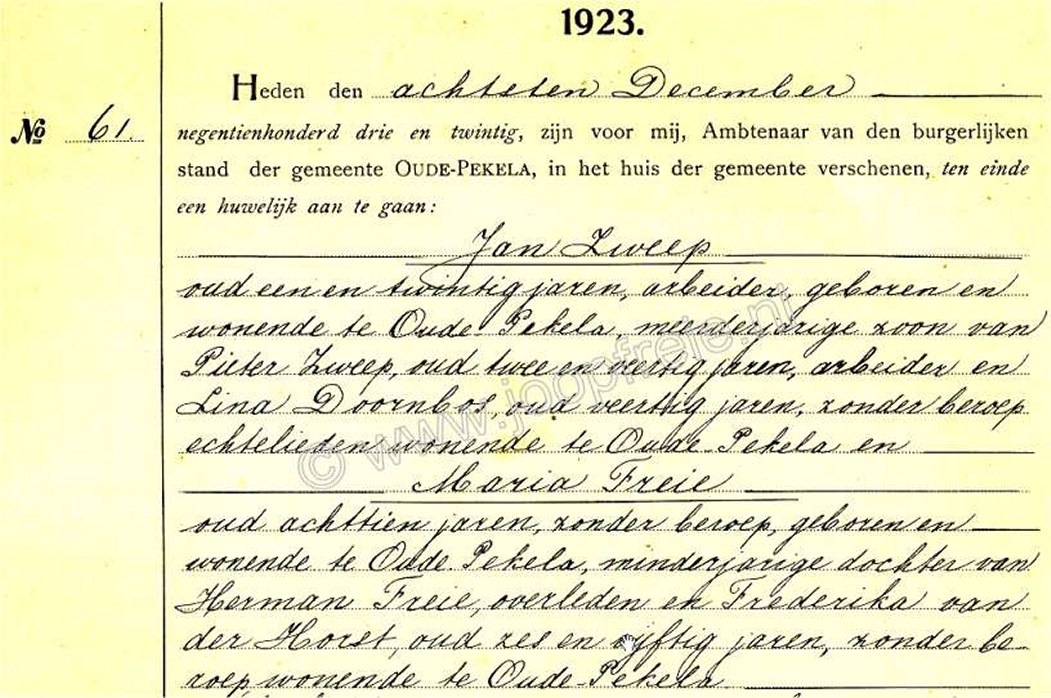 1923.
Heden den achtsten December
No 61.
negentienhonderd drie en twintig, zijn voor mij, Ambtenaar van den burgerlijken
stand der gemeente OUDE-PEKELA, in het huis der gemeente verschenen, ten einde
een huwelijk aan te gaan:
Jan Zweep
oud een en twintig jaren, arbeider, geboren en
wonende te Oude-Pekela, meerderjarige zoon van
Pieter Zweep, oud twee en veertig jaren, arbeider en
Lina Doornbos, oud veertig jaren, zonder beroep
echtelieden, wonende te Oude-Pekela en
Maria Freie
oud achttien jaren, zonder beroep, geboren en
wonende te Oude-Pekela, minderjarige dochter van
Herman Freie, overleden en Frederika van
der Horst, oud zes en vijftig jaren, zonder be-
roep wonende te Oude-Pekela
© www.joopfreie.nl